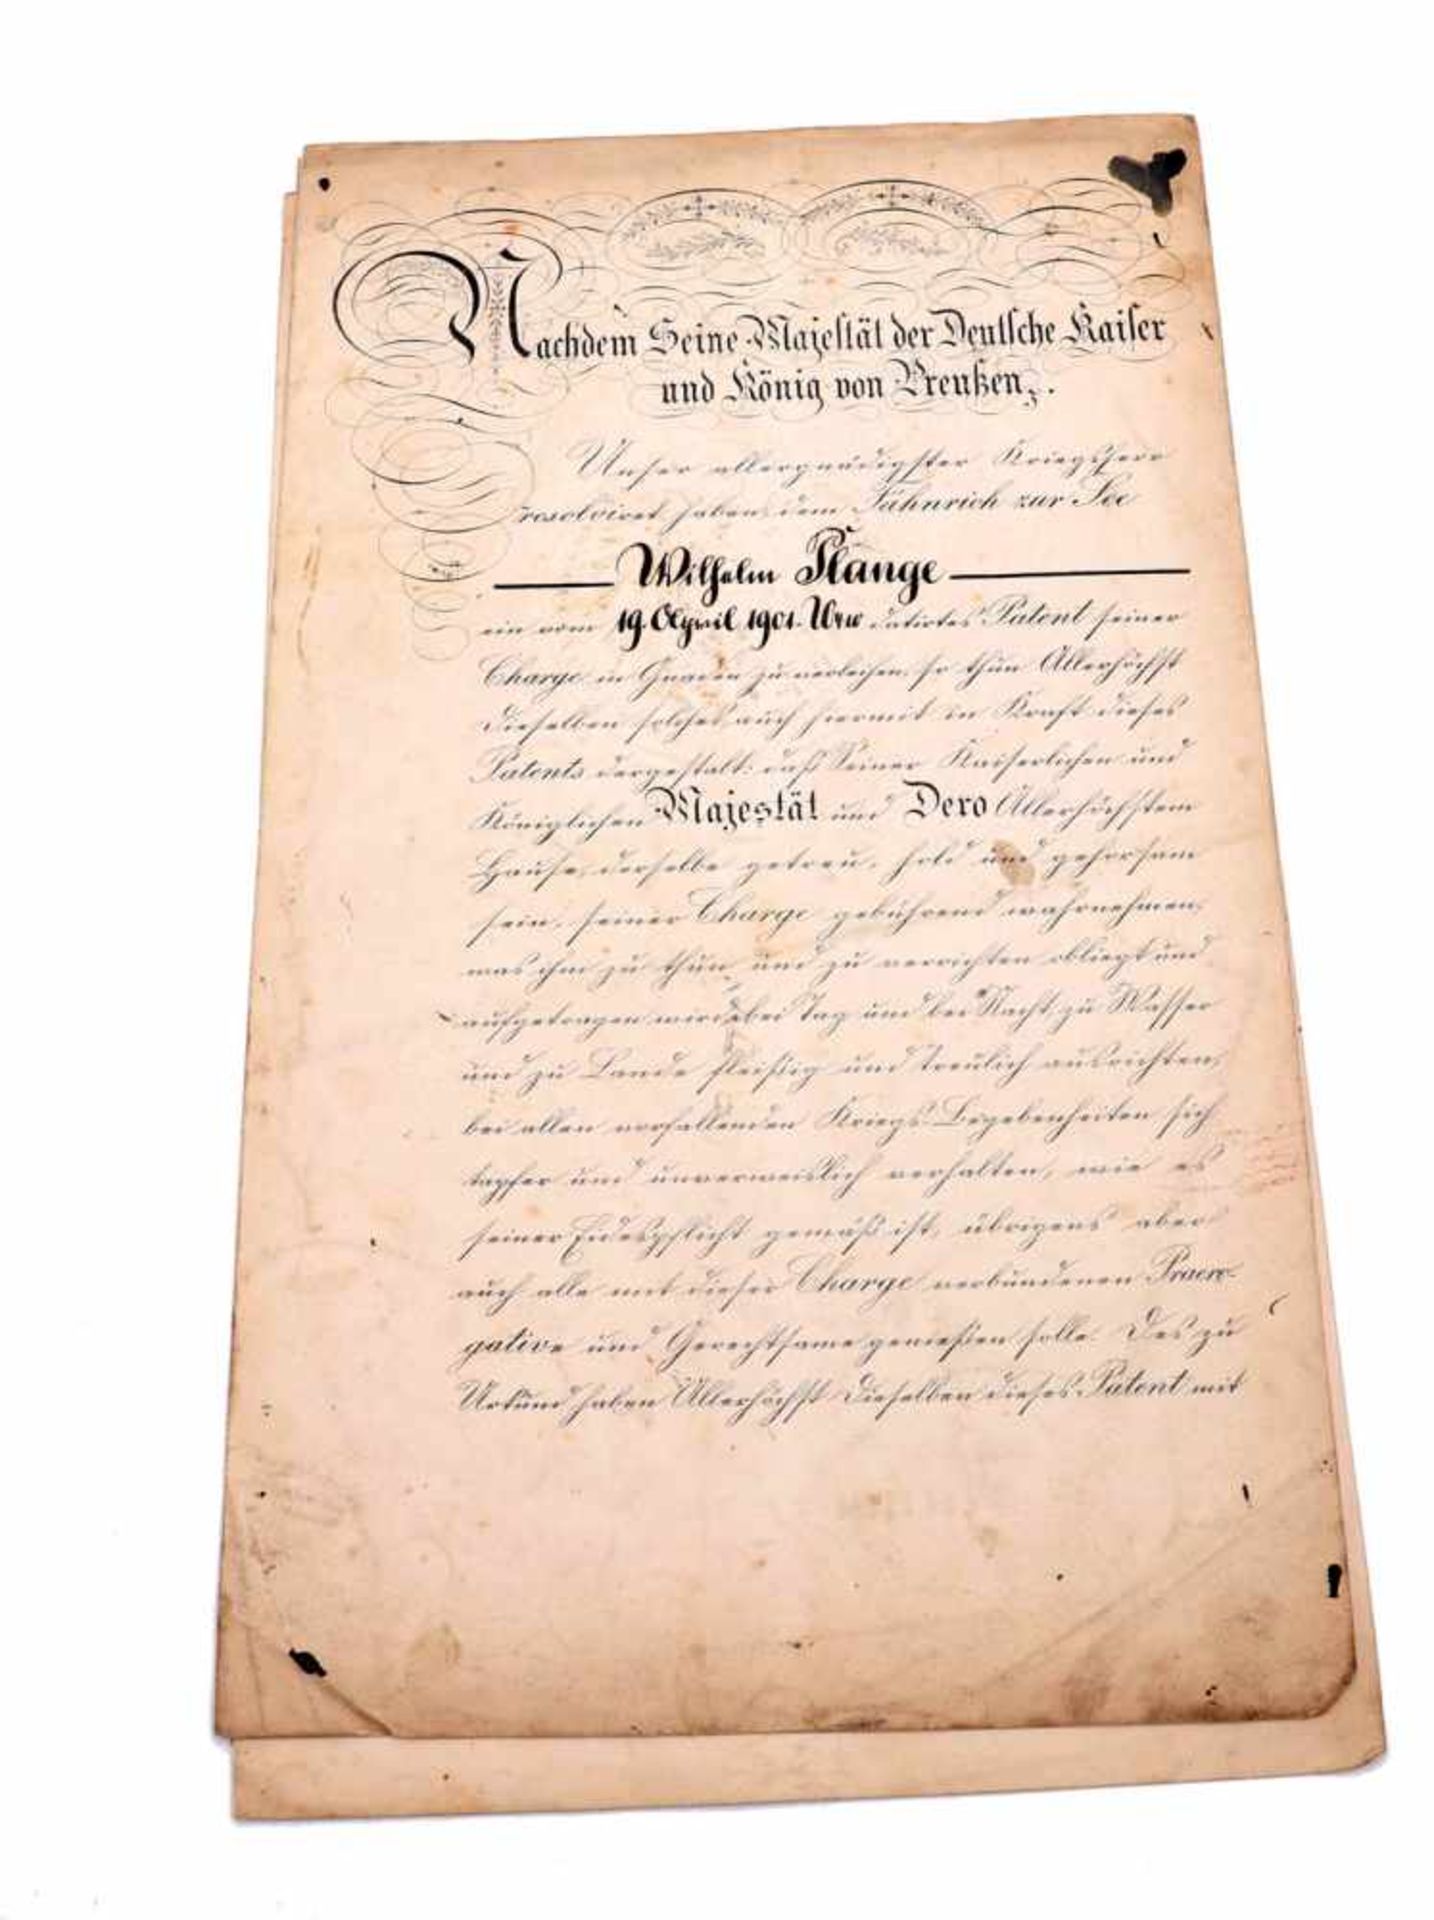 Nachdem Seine Majestät der Deutsche Kaiser
und König von Preußen,
Unser allergnädigster Kriegsherr
resolviret haben, dem Fähnrich zur See
Wilhelm Plange
ein vom 19. April 1901. datirtes Patent seiner
Charge in Gnaden zu verleihen, so thun Allerhöchst
Dieselben solches auch hiermit in Kraft dieses
Patents dergestalt: daß Seiner Kaiserlichen und
Königlichen Majestät und Dero Allerhöchstem
Hause, derselbe getreu, hold und gehorsam
sein, seiner Charge gebührend wahrnehmen,
was ihm zu thun und zu verrichten obliegt und
aufgetragen wird, bei Tag und bei Nacht, zu Wasser
und zu Lande fleißig und treulich ausrichten,
bei allen vorfallenden Kriegs-Begebenheiten sich
tapfer und unverweislich verhalten, wie es
seiner Eidespflicht gemäß ist, übrigens aber
auch alle mit dieser Charge verbundenen Praero-
gative und Gerechtsame genießen solle. Des zu
Urkund haben Allerhöchst Dieselben dieses Patent mit